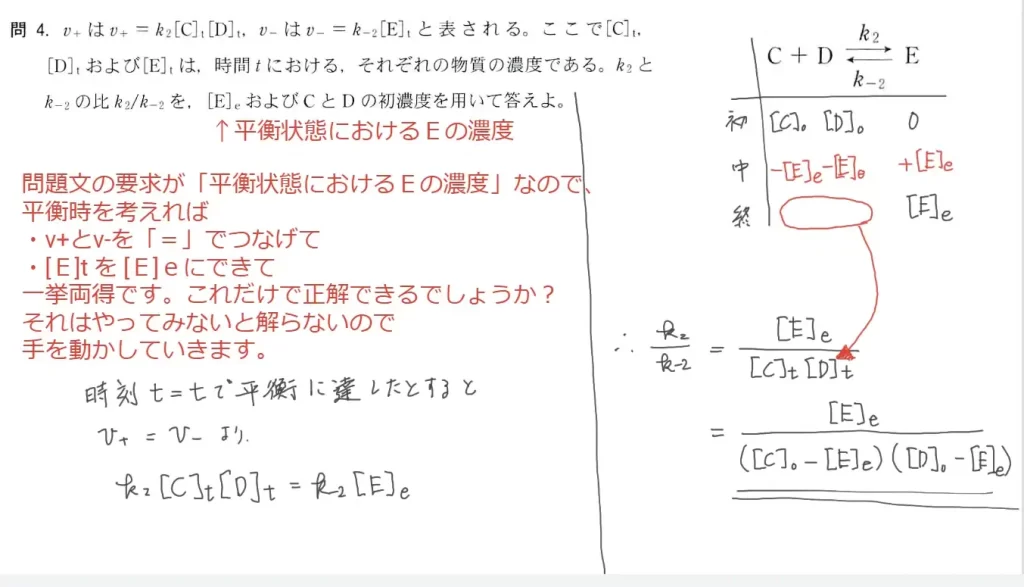 問 4. v₊ は v₊ = k₂[C]ₜ[D]ₜ, v₋ は v₋ = k₋₂[E]ₜ と表される。ここで[C]ₜ,
[D]ₜ および[E]ₜ は, 時間 t における, それぞれの物質の濃度である。k₂ と
k₋₂ の比 k₂/k₋₂ を, [E]ₑ および C と D の初濃度を用いて答えよ。
↑平衡状態におけるEの濃度
問題文の要求が「平衡状態におけるEの濃度」なので、
平衡時を考えれば
・v+とv-を「=」でつなげて
・[E]tを[E]eにできて
一挙両得です。これだけで正解できるでしょうか?
それはやってみないと解らないので
手を動かしていきます。
時刻 t=tで平衡に達したとすると
v₊ = v₋ より.
k₂[C]t[D]t = k₂[E]e
k₂
C + D ⇄ E
k₋₂
初 [C]₀ [D]₀ 0
中 -[E]e -[E]e +[E]e
終 [E]e
∴ k₂/k-2 = [E]e/[C]t[D]t
= [E]e/([C]₀-[E]e)([D]₀-[E]e)